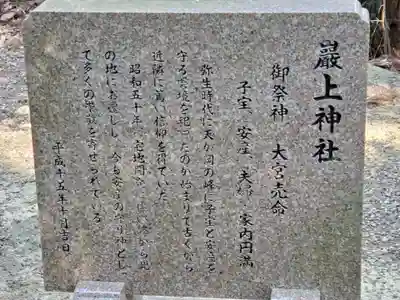 巖上神社
御祭神 大宮売命
子宝、安産、夫婦、家内円満
弥生時代に天が岡の峰に子宝と安産を
守る宮境を祀ったのが始まりで古くから
近隣に篤い信仰を得ていた
昭和五十年、宅地開 から現
の地に遷 し、今も安産の守り神とし
て多くの 敬を寄せられている
平成十五年十月吉日